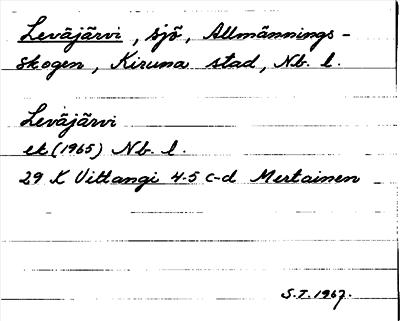 Leväjärvi, sjö, Allmännings-
skogen, Kiruna stad, Nb. l.
Leväjärvi
ek (1965) Nb. l.
29 K Vittangi 4-5 c-d Mertainen
S.T. 1967.